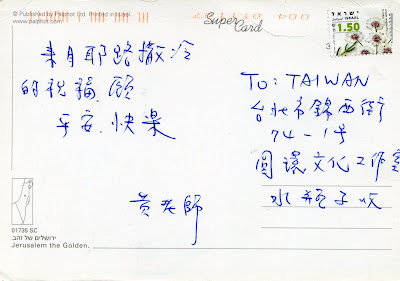 © Published by Palphot Ltd. Printed in Israel.
www.palphot.com
Super
Card
ישראל
ISRAEL
1.50
來自耶路撒冷
的祝福, 願
平安、快樂
黃老師
TO: TAIWAN
台北市錦西街
74-1号
圓環文化工作室
水瓶子收
01735 SC
ירושלים של זהב.
Jerusalem the Golden.